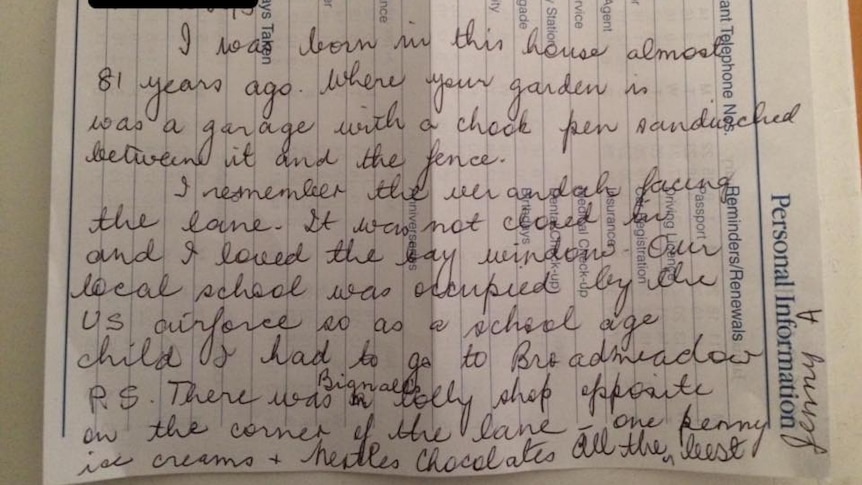 I was born in this house almost
81 years ago. Where your garden is
was a garage with a chook pen sandwiched
between it and the fence.
I remember the verandah facing
the lane. It was not closed in
and I loved the bay window. Our
local school was occupied by the
US airforce so as a school age
child I had to go to Broadmeadow
P.S. There was Bignalls lolly shop opposite
on the corner of the lane - one penny
ice creams + Nestles Chocolates All the best
Personal Information
Reminders/Renewals
Passport
Driving
Registration
Insurance
Medical Check-up
Dental Check-up
Birthdays
ant Telephone Nos.
Agent
ervice
y Station
gade
ays Taken